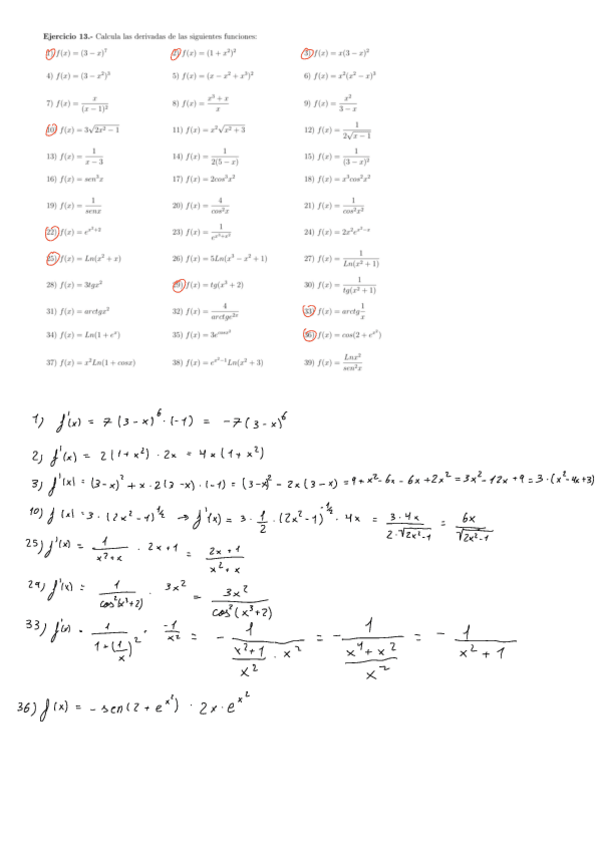 Ejercicio 13.- Calcula las derivadas de las siguientes funciones:
1) f(x) = (3 − x)⁷ 2) f(x) = (1 + x²)² 3) f(x) = x(3 − x)²
4) f(x) = (3 − x²)³ 5) f(x) = (x − x² + x³)² 6) f(x) = x²(x² − x)³
7) f(x) = x/(x − 1)² 8) f(x) = (x³ + x)/x 9) f(x) = x²/(3 − x)
10) f(x) = 3√(2x² − 1) 11) f(x) = x²√(x² + 3) 12) f(x) = 1/(2√(x − 1))
13) f(x) = 1/(x − 3) 14) f(x) = 1/(2(5 − x)) 15) f(x) = 1/(3 − x)²
16) f(x) = sen³x 17) f(x) = 2cos³x² 18) f(x) = x³cos²x²
19) f(x) = 1/senx 20) f(x) = 4/cos²x 21) f(x) = 1/cos²x²
22) f(x) = 23) f(x) = 24) f(x) =
25) f(x) = Ln(x² + x) 26) f(x) = 5Ln(x³ − x² + 1) 27) f(x) = 1/Ln(x² + 1)
28) f(x) = 3tgx² 29) f(x) = tg(x³ + 2) 30) f(x) = 1/tg(x² + 1)
31) f(x) = arctgx² 32) f(x) = 4/arctge²ˣ 33) f(x) = arctg 1/x
34) f(x) = Ln(1 + eˣ) 35) f(x) = 36) f(x) = cos(2 + e^x²)
37) f(x) = x²Ln(1 + cosx) 38) f(x) = Ln(x² + 3) 39) f(x) = Lnx²/sen²x
1) f'(x) = 7(3−x)⁶·(−1) = −7(3−x)⁶
2) f'(x) = 2(1+x²)·2x = 4x(1+x²)
3) f'(x) = (3−x)² + x·2(3−x)·(−1) = (3−x)² − 2x(3−x) = 9+x²−6x−6x+2x² = 3x²−12x+9 = 3·(x²−4x+3)
10) f(x) = 3·(2x²−1)^½ → f'(x) = 3·1/2·(2x²−1)^−½·4x = 3·4x/(2·√(2x²−1)) = 6x/√(2x²−1)
25) f'(x) = 1/(x²+x) · 2x+1 = (2x+1)/(x²+x)
29) f'(x) = 1/cos²(x³+2) · 3x² = 3x²/cos²(x³+2)
33) f'(x) = 1/(1+(1/x)²) · −1/x² = − 1/((x²+1)/x² · x²) = − 1/((x⁴+x²)/x²) = − 1/(x²+1)
36) f'(x) = −sen(2+e^x²)·2x·e^x²